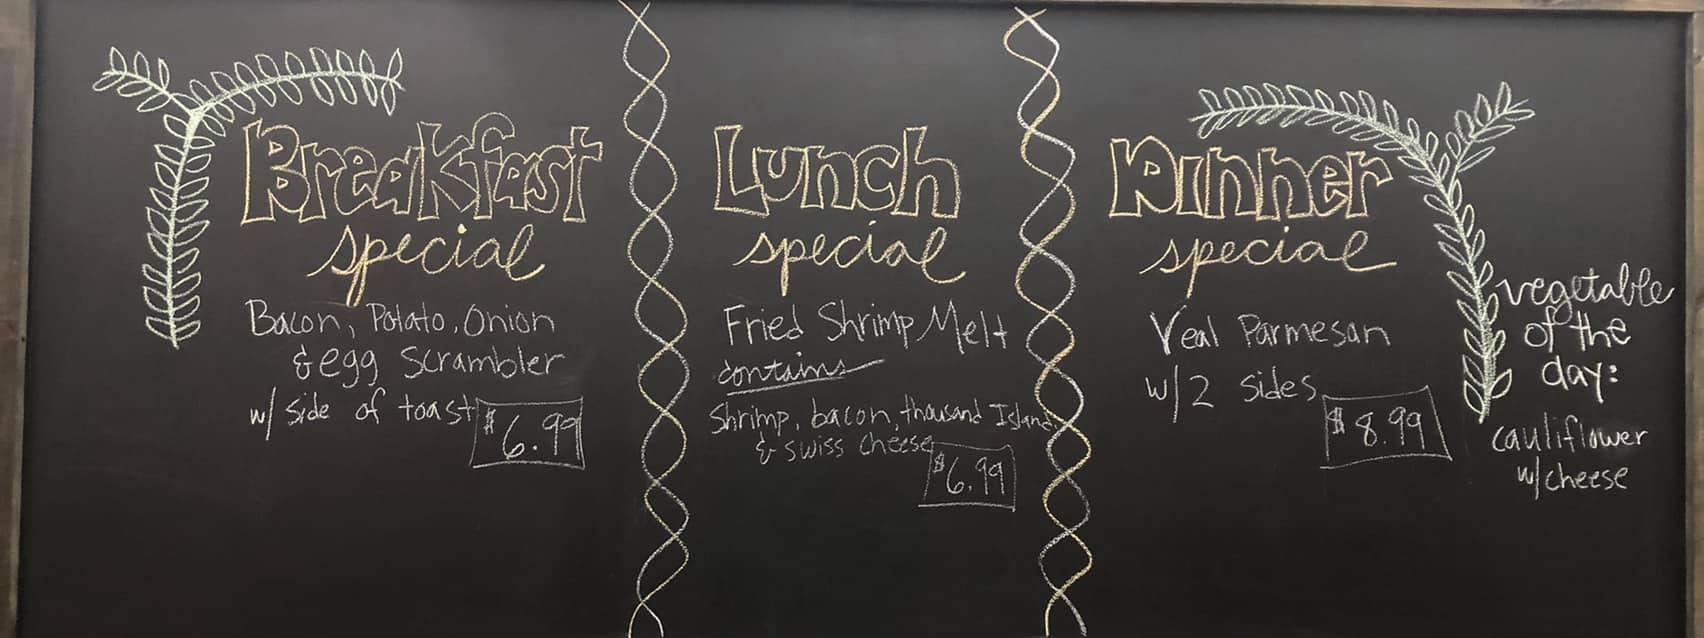 Breakfast
special
Bacon, Potato, Onion
& egg Scrambler
w/ side of toast
$6.99
Lunch
special
Fried Shrimp Melt
contains
Shrimp, bacon, thousand Island
& swiss cheese
$6.99
Dinner
special
Veal Parmesan
w/2 sides
$8.99
vegetable
of the
day:
cauliflower
w/cheese